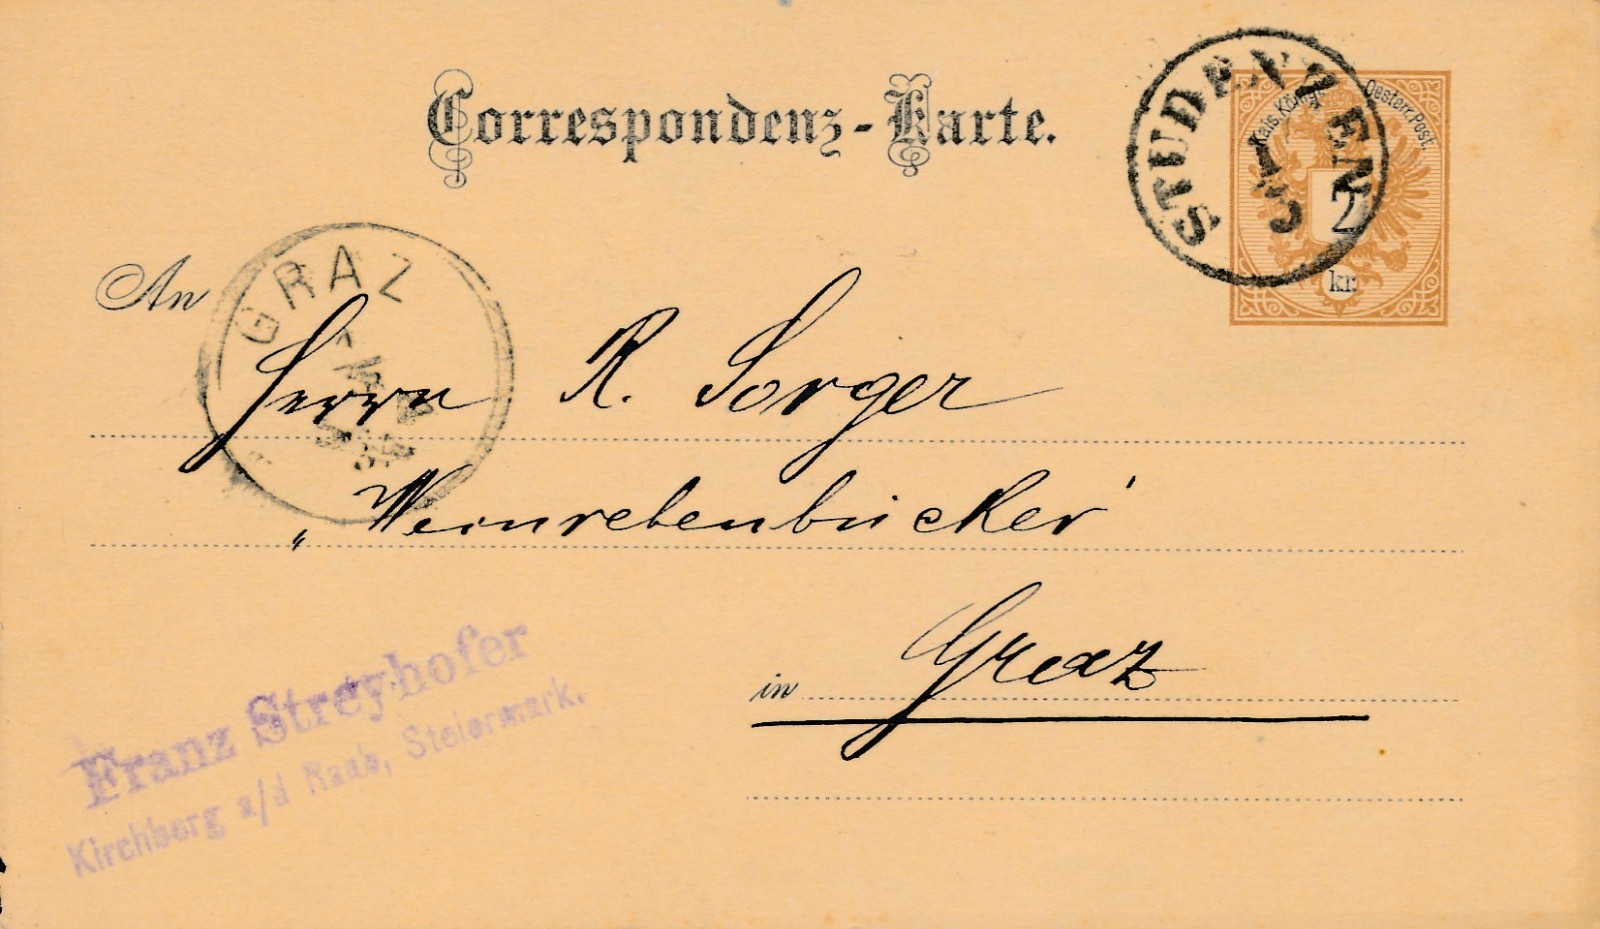 Correspondenz-Karte.
Kais. Königl. Oesterr. Post.
2
kr.
STUDENZEN
An
GRAZ
Herrn R. Sorger
„Weinrebenbücker"
in Graz
Franz Streyhofer
Kirchberg a/d Raab, Steiermark.